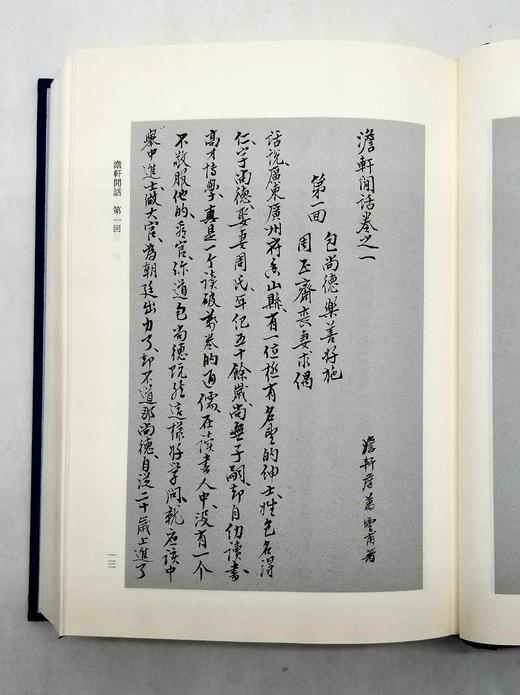 澹軒閒話卷之一
澹軒葛雲甫著
第一回
包尚德樂善好施
周正齋喪妻求偶
話說廣東廣州府香山縣有一位極有名望的紳士姓包名得
仁字尚德娶妻周氏年紀五十餘歲尚無子嗣却自幼讀書
高才博學真是一个讀破萬卷的通儒在讀書人中没有一个
不敬服他的看官你道包尚德既然這樣好学問就应該中
舉中進士做大官為朝廷出力了却不道那尚德自從二十歲上進了
澹軒閒話 第一回
一三